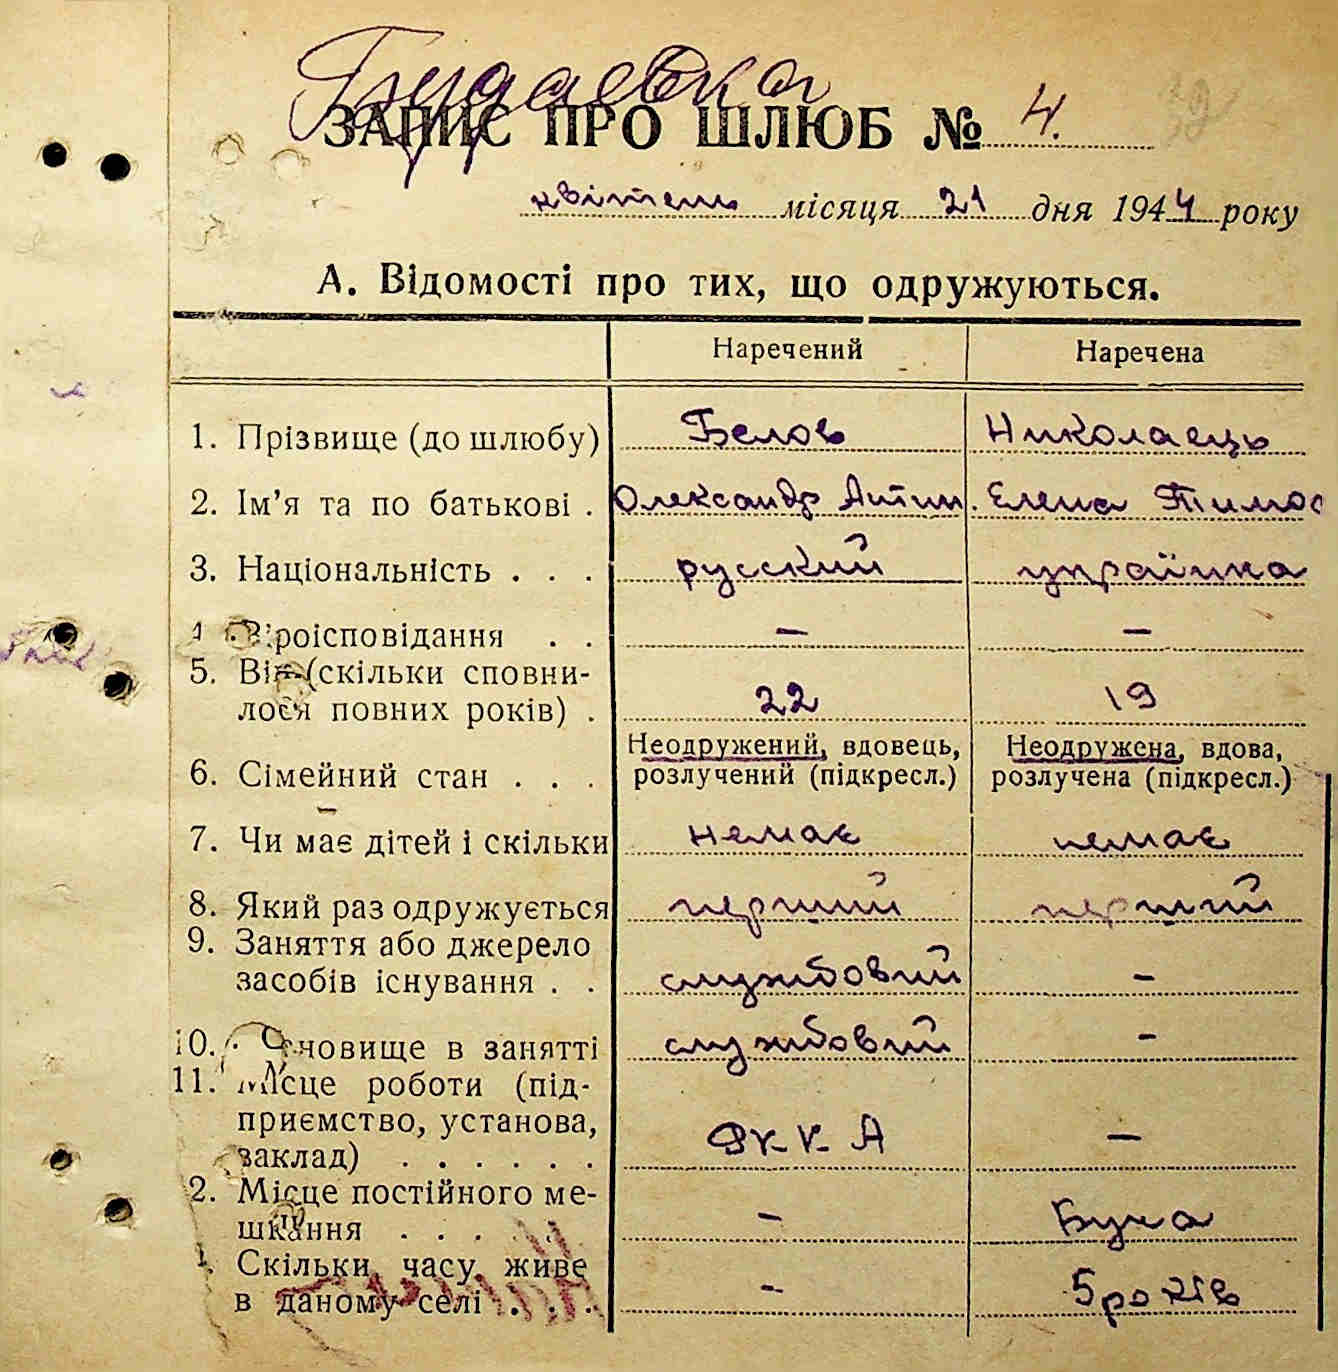 Будаевка
ЗАПИС ПРО ШЛЮБ № 4.
квітень місяця 21 дня 1944 року
А. Відомості про тих, що одружуються.
Наречений Наречена
1. Прізвище (до шлюбу) Белов Николаець
2. Ім'я та по батькові . Олександр Антин. Елена Тимос
3. Національність . . . русский українка
Віроісповідання . . – –
5. Вік (скільки сповни-
лося повних років) . 22 19
6. Сімейний стан . . . Неодружений, вдовець, Неодружена, вдова,
розлучений (підкресл.) розлучена (підкресл.)
7. Чи має дітей і скільки немає немає
8. Який раз одружується перший перший
9. Заняття або джерело
засобів існування . . службовий –
10. Становище в занятті службовий –
11. Місце роботи (під-
приємство, установа,
заклад) . . . . . . РККА –
2. Місце постійного ме-
шкання . . . . . – Буча
Скільки часу живе
в даному селі . . . – 5 років